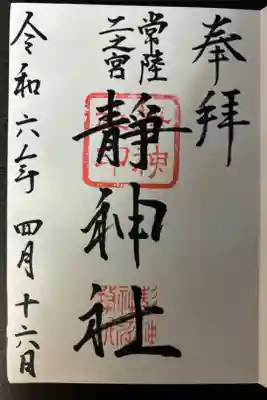 奉拝
常陸
二之宮
靜神社
令和六年 四月十六日